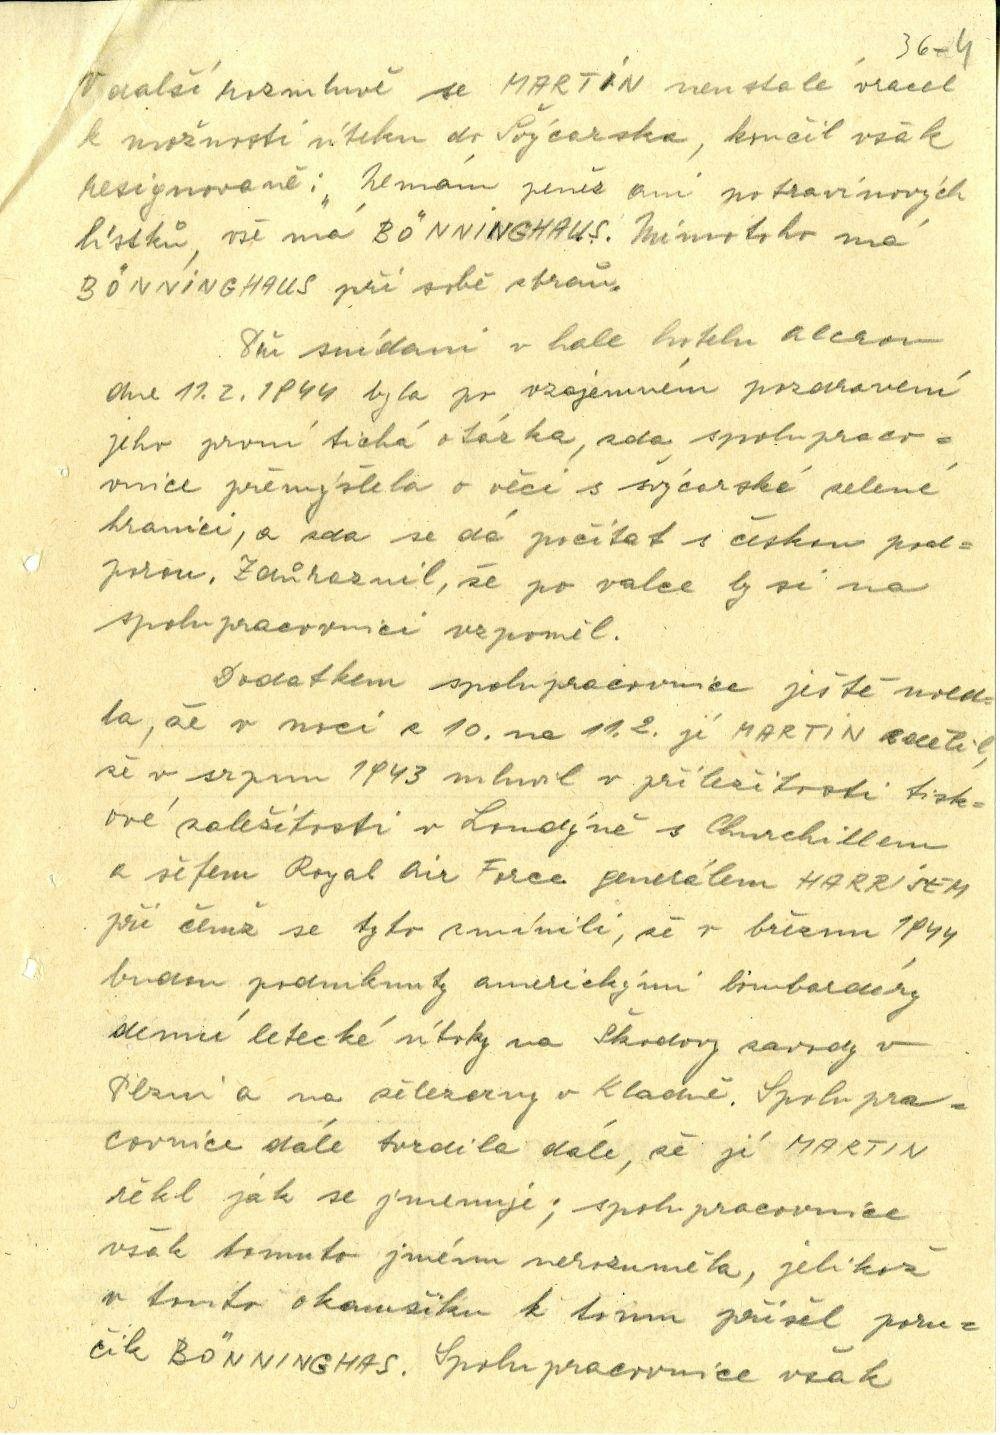 36-4
V další rozmluvě se MARTIN neustále vracel
k možnosti útěku do Švýcarska, končil však
resignovaně: „Nemám peněz ani potravinových
lístků, vše má BÖNNINGHAUS. Mimotoho má
BÖNNINGHAUS při sobě zbraň.
Při snídani v hale hotelu Alcron
dne 11.2.1944 byla po vzájemném pozdravení
jeho první tichá otázka, zda spolupraco=
vnice přemýšlela o věci s švýcarské zelené
hranici, a zda se dá počítat s českou pod=
porou. Zdůraznil, že po valce by si na
spolupracovnici vzpoměl.
Dodatkem spolupracovnice ještě uved=
la, že v noci z 10. na 11.2. jí MARTIN sdělil,
že v srpnu 1943 mluvil v příležitosti tisk=
ové záležitosti v Londýně s Churchillem
a šéfem Royal Air Force generálem HARRISEM
při čemž se tyto zmínili, že v březnu 1944
budou podniknuty americkými bombardéry
denní letecké útoky na Škodovy zavody v
Plzni a na železarny v Kladně. Spolupra-=
covnice dále tvrdila dále, že jí MARTIN
řekl jak se jmenuje; spolupracovnice
však tomuto jménu nerozuměla, jelikož
v tomto okamžiku k tomu přišel poru=
čík BÖNNINGHAS. Spolupracovnice však